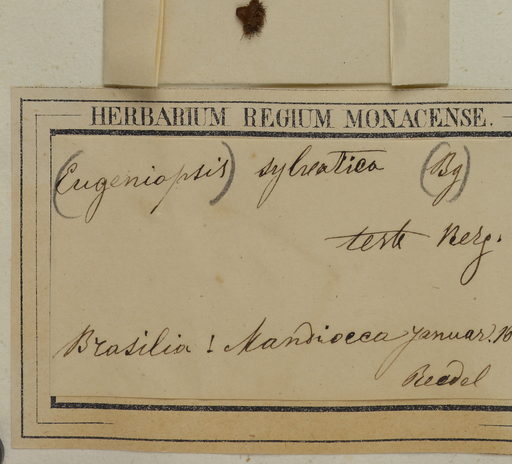 HERBARIUM REGIUM MONACENSE.
(Eugeniopsis) sylvatica (Bg)
teste Berg.
Brasilia! Mandiocca Januar.
Riedel